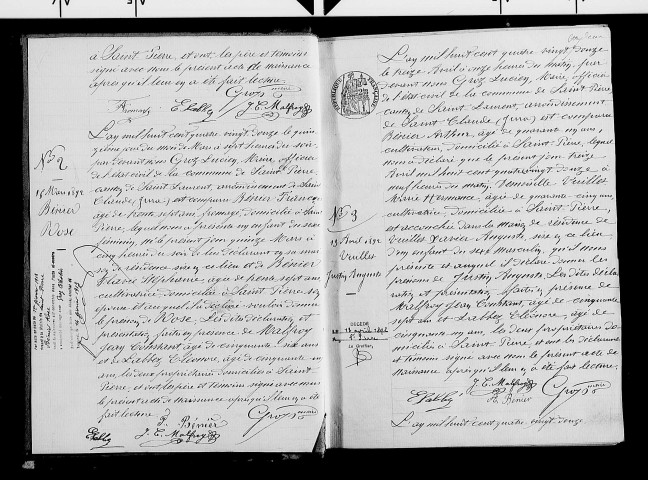 à Saint Pierre, et ont les père et témoins
signé avec nous le présent acte de naissance
après qu'il leur en a été fait lecture.
J. C. Malfroy
N° 2
15 Mars 1892
Bénier
Rose
L'an mil huit cent quatre vingt douze le quin-
zième jour du mois de Mars à sept heures du soir
par devant nous Groz Lucien, Maire, officier
de l'état civil de la commune de Saint Pierre
canton de Saint Laurent, arrondissement de Saint
Claude (Jura) est comparu Bénier François
âgé de trente sept ans, fromager, domicilié à Saint
Pierre, lequel nous a présenté un enfant du sexe
féminin, né le présent jour quinze Mars à
cinq heures du soir de lui déclarant en sa mai-
son de résidence en ce lieu et de Bénier
âgé de trente sept ans
cultivatrice, domiciliée à Saint Pierre son
épouse et auquel il a déclaré vouloir donner
le prénom de Rose. Les dites déclaration et
présentation faites en présence de Malfroy
Jean Constant, âgé de cinquante six ans
et de Labbez Eléonore, âgé de cinquante un
ans, les deux propriétaires domiciliés à Saint
Pierre, et ont les père et témoins signé avec nous
le présent acte de naissance après qu'il leur en a été
fait lecture.
Bénier
J. C. Malfroy
L'an mil huit cent quatre vingt douze
le treize Avril à onze heures du matin, par
devant nous Groz Lucien, Maire, officier
de l'état civil de la commune de Saint Pierre
canton de Saint Laurent, arrondissement
de Saint Claude (Jura) est comparu
Bénier Arthur, âgé de quarante un ans,
cultivateur, domicilié à Saint Pierre, lequel
nous a déclaré que le présent jour treize
Avril mil huit cent quatre vingt douze à
neuf heures du matin, Demoiselle Vuillet
Marie Hermance, âgée de quarante cinq ans,
cultivatrice, domiciliée à Saint Pierre,
est accouchée dans la maison de résidence de
Vuillet Xavier Auguste, sise en ce lieu
d'un enfant du sexe masculin, qu'il nous
présente et auquel il déclare donner les
prénoms de Justin Auguste. Les dites décla-
ration et présentation faites en présence de
Malfroy Jean Constant, âgé de cinquante
sept ans et Labbez Eléonore, âgé de
cinquante un ans, les deux propriétaires do-
miciliés à Saint Pierre, et ont les déclarant
et témoins signé avec nous le présent acte de
naissance après qu'il leur en a été fait lecture.
J. C. Malfroy
A. Bénier
N° 3
13 Avril 1892
Vuillet
Justin Auguste
L'an mil huit cent quatre vingt douze